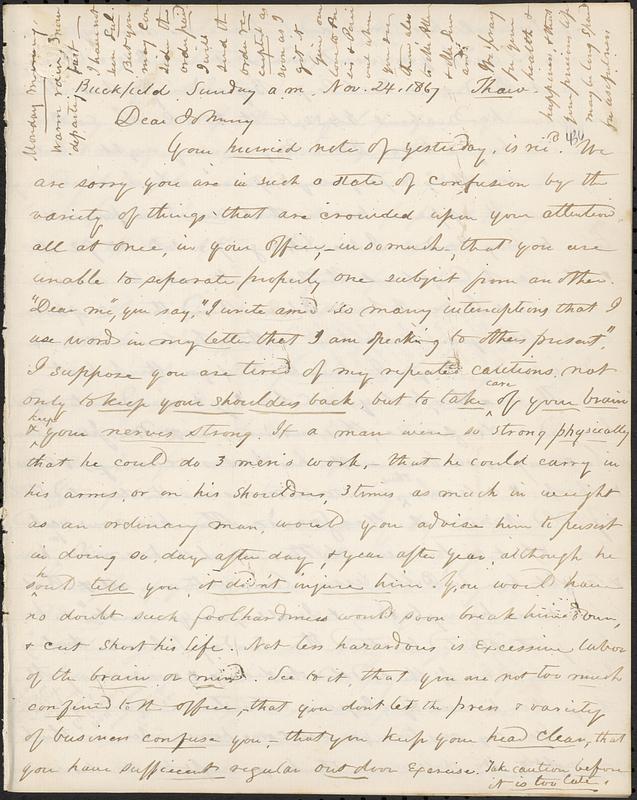 Buckfield Sunday a m. Nov. 24. 1867 Thaw.
Dear Johnny
Your hurried note of yesterday, is rec'd. We
430
are sorry you are in such a state of confusion by the
variety of things that are crowded upon your attention
all at once, in your office,- insomuch, that you are
unable to separate properly one subject from another.
"Dear me", you say, "I write amid so many interruptions that I
use words in my letter that I am speaking to others present".
I suppose you are tired of my repeated cautions, not
only to keep your shoulders back, but to take care of your brain
& keep your nerves strong. If a man were so strong physically
that he could do 3 men's work,- that he could carry in
his arms, or on his shoulders, 3 times as much in weight
as an ordinary man, would you advise him to persist
in doing so, day after day, & year after year, although he
could tell you, it didn't injure him. You would have
no doubt such foolhardiness would soon break him down,
& cut short his life. Not less hazardous is excessive labor
of the brain or mind. See to it, that you are not too much
confined to the office,- that you don't let the press & variety
of business confuse you,- that you keep your head clear, that
you have sufficient regular out door exercise. Take caution before
it is too late.
Monday morning
warm rain, snow
departing fast
I have not
seen
But you
may
the
order paid
I will
send the
order
as
soon as I
get it
you see
them also
to the
&
pray
for your
health &
happiness, & that
your precious life
may be long spared
in usefulness